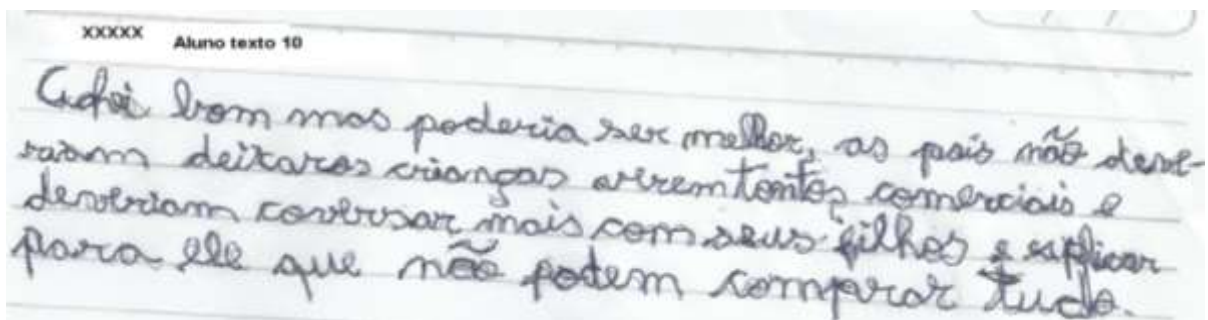 XXXXX Aluno texto 10
Achei bom mas poderia ser melhor, as pais não deve-
raiam deixaros crianças verem tontos comerciais e
deveriam coversar mais com seus filhos e explicar
para ele que não podem comparar tudo.